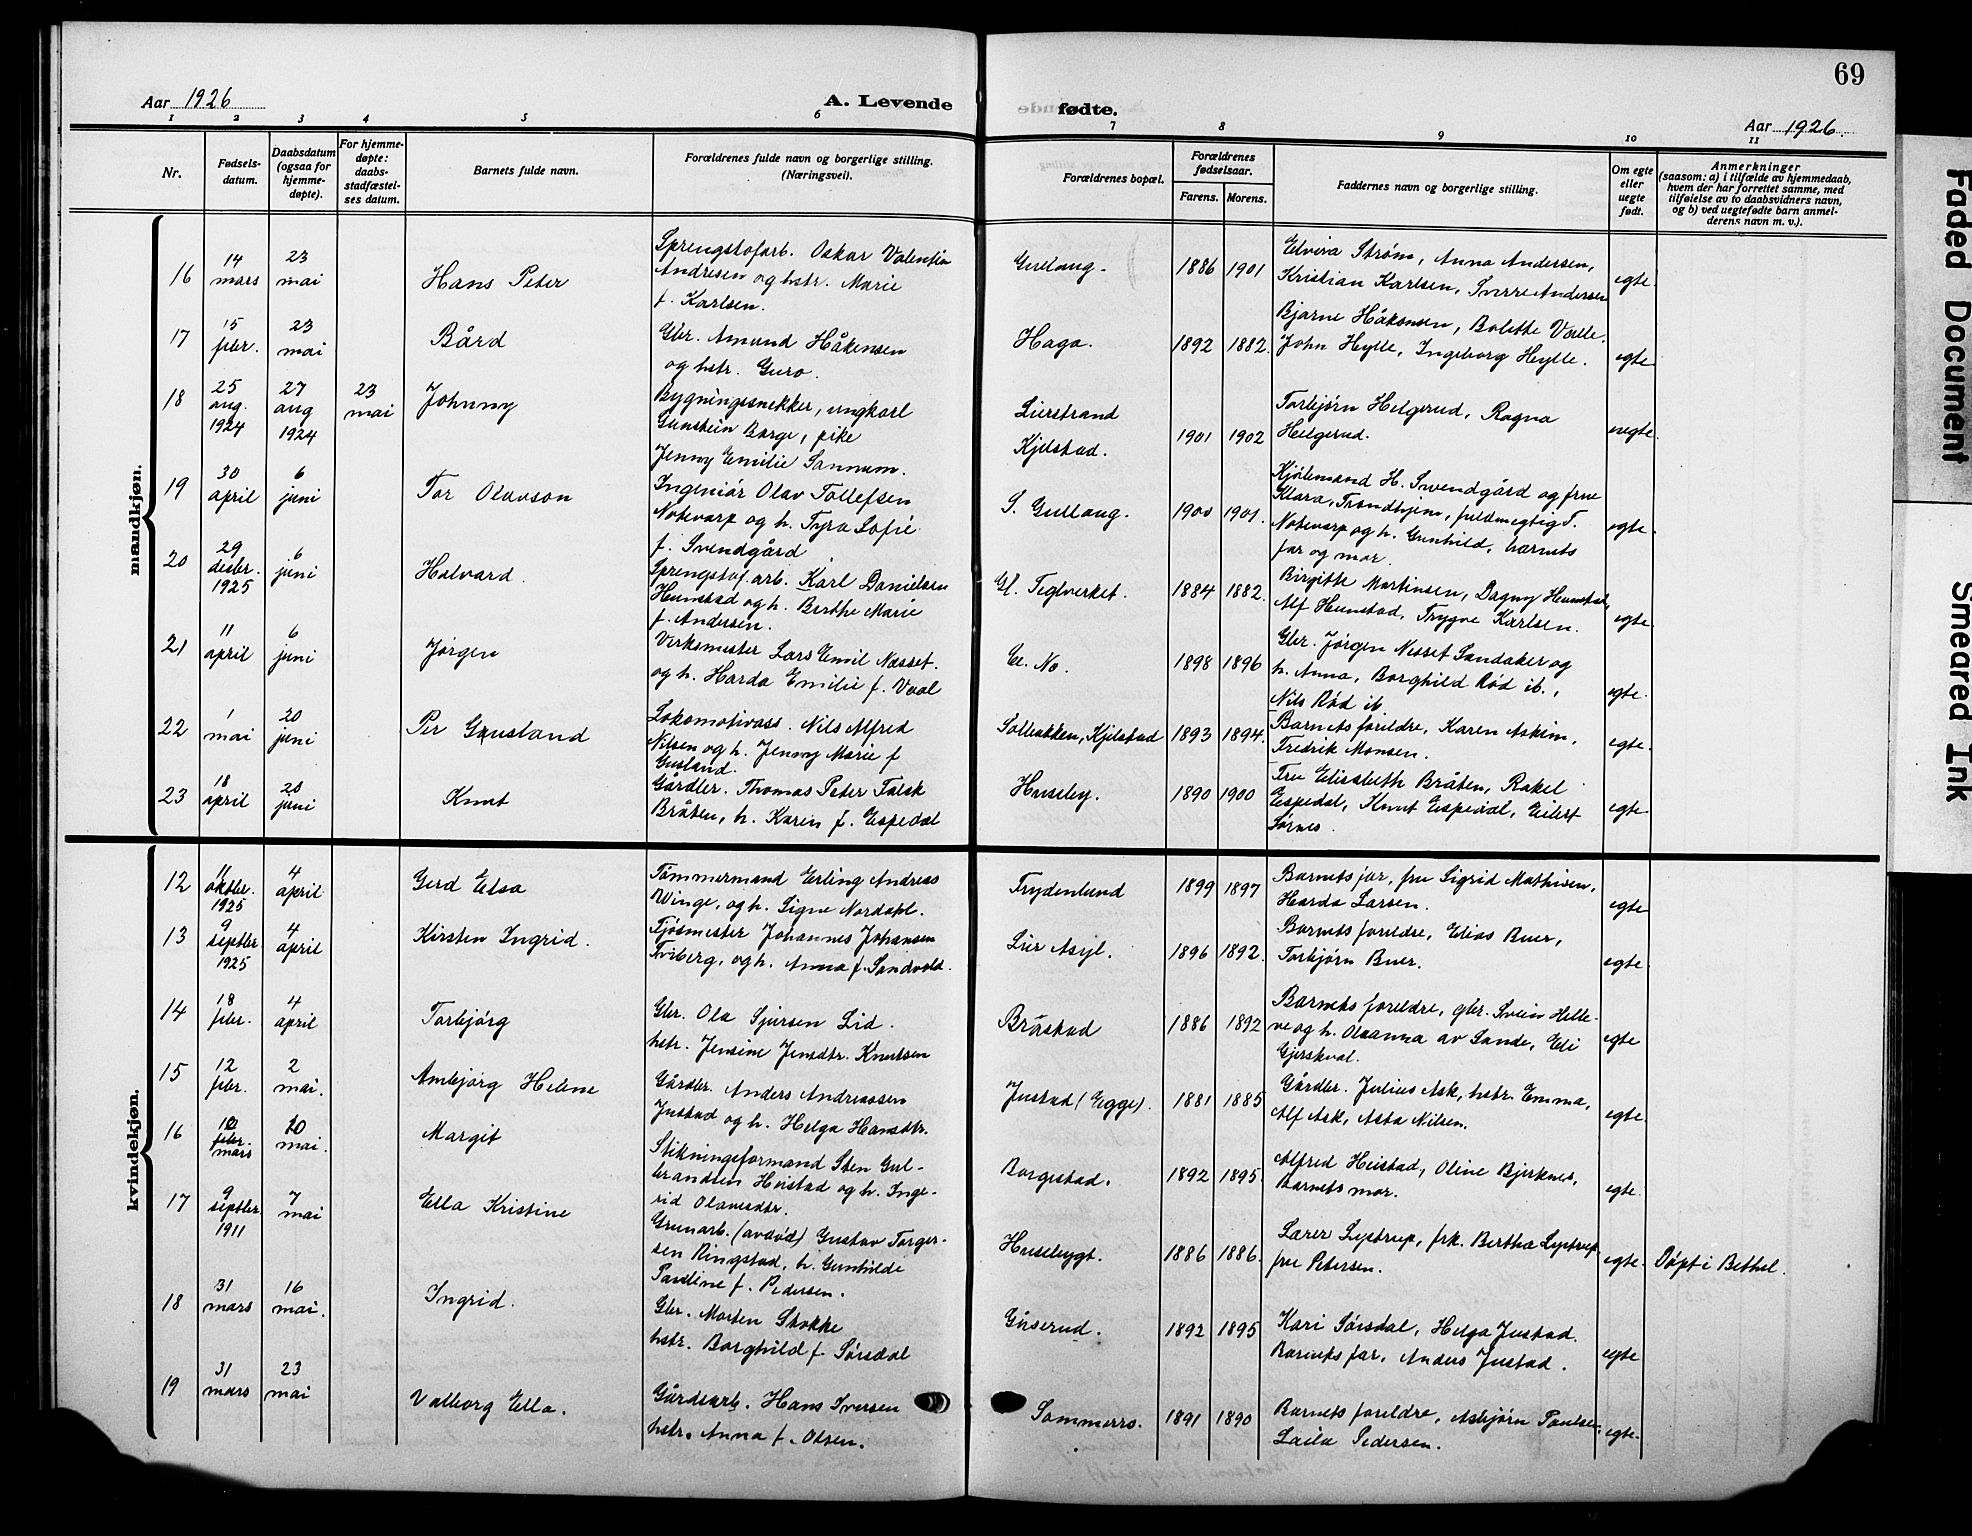 69
Aar 1926
A. Levende
fødte.
Aar 1926.
1 2 3 4 5 6 7 8 9 10 11
Nr.
Fødsels-
datum.
Daabsdatum
(ogsaa for
hjemme-
døpte).
For hjemme-
døpte:
daabs-
stadfæstel-
ses datum.
Barnets fulde navn.
Forældrenes fulde navn og borgerlige stilling.
(Næringsvei).
Forældrenes bopæl.
Forældrenes
fødselsaar.
Farens. Morens.
Faddernes navn og borgerlige stilling.
Om egte
eller
uegte
født.
Anmerkninger
(saasom: a) i tilfælde av hjemmedaab,
hvem der har forrettet samme, med
tilføielse av to daabsvidners navn,
og b) ved uegtefødte barn anmel-
derens navn m. v.).
mandkjøn.
16
14
mars
23
mai
Hans Peter
Sprengstofarb. Oskar Valentin
Andresen og hstr. Marie
f. Karlsen.
Gullaug.
1886 1901
Elvira Strøm, Anna Andersen,
Kristian Karlsen, Sverre Andersen
egte.
17
15
febr.
23
mai
Bård
Gbr. Amund Håkensen
og hstr. Guro.
Haga.
1892 1882.
Bjarne Håkonsen, Bolette Valle.
John Hylle, Ingeborg Hylle.
egte
18
25
aug.
1924
27
aug
1924
23
mai
Johnny
Bygningssnekker, ungkarl
Gunstein Borge, pike
Jenny Emilie Sannum.
Lierstrand
Kjelstad.
1901 1902
Torbjørn Helgerud, Ragna
Helgerud.
uegte.
19
30
april
6
juni
Tor Olavson
Ingeniør Olav Tollefsen
Notevarp og h. Tyra Sofie
f. Svendgård
S. Gullaug.
1900 1901.
Kjølemand H. Swendgård og frue
Klara, Trondhjem, fuldmegtig T.
Notevarp og h. Gunhild, barnets
far og mor.
egte.
20
29
desbr.
1925
6
juni
Halvard.
Sprengstof.arb. Karl Danielsen
Humstad og h. Berthe Marie
f. Andersen.
Gl. Teglverket.
1884 1882.
Birgitte Martinsen, Dagny Humstad,
Alf Humstad, Trygve Karlsen.
egte.
21
11
april
6
juni
Jørgen
Verksmester Lars Emil Nesset.
og h. Harda Emilie f. Vaal
1898 1896
Gbr. Jørgen Nesset Sandaker og
h. Anna, Borghild Rød ib.,
Nils Rød ib.
egte.
22
1
mai
20
juni
Per Gusland
Lokomotivass. Nils Alfred
Nilsen og h. Jenny Marie f
Gusland.
Solbakken, Kjelstad
1893 1894.
Barnets foreldre, Karen Askim,
Fredrik Monsen.
egte.
23
18
april
20
juni
Knut
Gårdbr. Thomas Peter Falck
Bråten, h. Karin f. Espedal
Huseby.
1890 1900
Fru Elisabeth Bråten, Rakel
Espedal, Knut Espedal, Eilert
Sørnes.
egte
kvindekjøn.
12
11
oktbr.
1925
4
april
Gerd Elsa
Tømmermand Erling Andreas
Winge, og h. Signe Nordahl.
Frydenlund
1899 1897
Barnets far, fru Sigrid Mathisen,
Harda Larsen.
egte
13
9
septbr
1925
4
april
Kirsten Ingrid.
Fjøsmester Johannes Johansen
Friberg, og h. Anna f. Sandvold.
Lier Asyl.
1896 1892.
Barnets foreldre, Elias Buer,
Torbjørn Buer.
egte.
14
18
febr.
4
april
Torbjørg
Gbr. Ola Sjursen Lid.
hstr. Jensine Jensdtr. Knutsen
Bråstad
1886 1892
Barnets foreldre, gbr. Svein Helle-
ve og h. Oleanna av Sande, Eli
Gjerskval.
egte
15
12
febr.
2
mai.
Ambjørg Helene
Gårdbr. Anders Andreassen
Justad og h. Helga Hansdtr.
Justad (Egge).
1881 1885
Gårdbr. Julius Ask, hstr. Emma,
Alf Ask, Asta Nilsen.
egte.
16
febr.
mars
mai.
Margit
Stikningsformand Sten Gul-
brandsen Heistad og h. Inge-
rid Olavesdtr.
Borgestad.
1892 1895.
Alfred Heistad, Oline Bjerknes,
Barnets mor.
egte.
17
9
septbr.
1911
7
mai
Ella Kristine
Grunarb. (avdød) Gustav Torger-
sen Ringstad, h. Gunhilde
Pauline f. Pedersen.
Husebygt.
1886 1886.
Lærer Lystrup, frk. Bertha Lystrup,
fru Petersen.
egte.
Døpt i Bethel.
18
31
mars
16
mai.
Ingrid.
Gbr. Morten Stokke
hstr. Borghild f. Sørsdal
Gåserud.
1892 1895
Kari Sørsdal, Helga Justad.
Barnets far, Anders Justad.
egte
19
31
mars
23
mai
Valborg Ella.
Gårdsarb. Hans Iversen
hstr. Anna f. Olsen.
Sommerro.
1891 1890
Barnets foreldre, Asbjørn Paulsen,
Laila Pedersen.
egte.
Faded Document
Smeared Ink